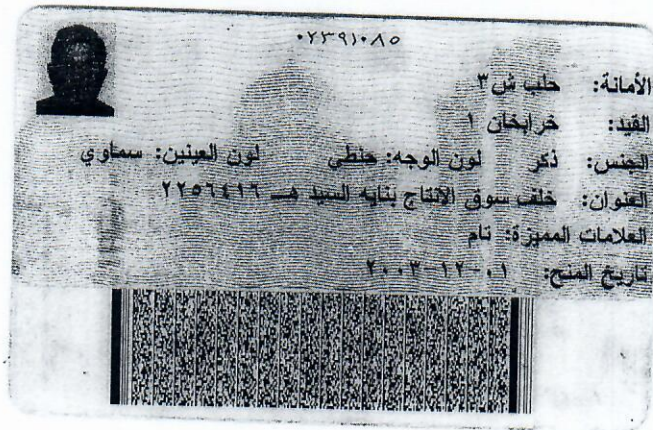 ٠٧٣٩١٠٨٥
الأمانة: حلب ش ٣
القيد: خرابخان ١
الجنس: ذكر لون الوجه: حنطي لون العينين: سماوي
العنوان: خلف سوق الانتاج بنايه السيد هـ ٢٢٥٦٤١٦
العلامات المميزة: تام
تاريخ المنح: ٠١-١٢-٢٠٠٣